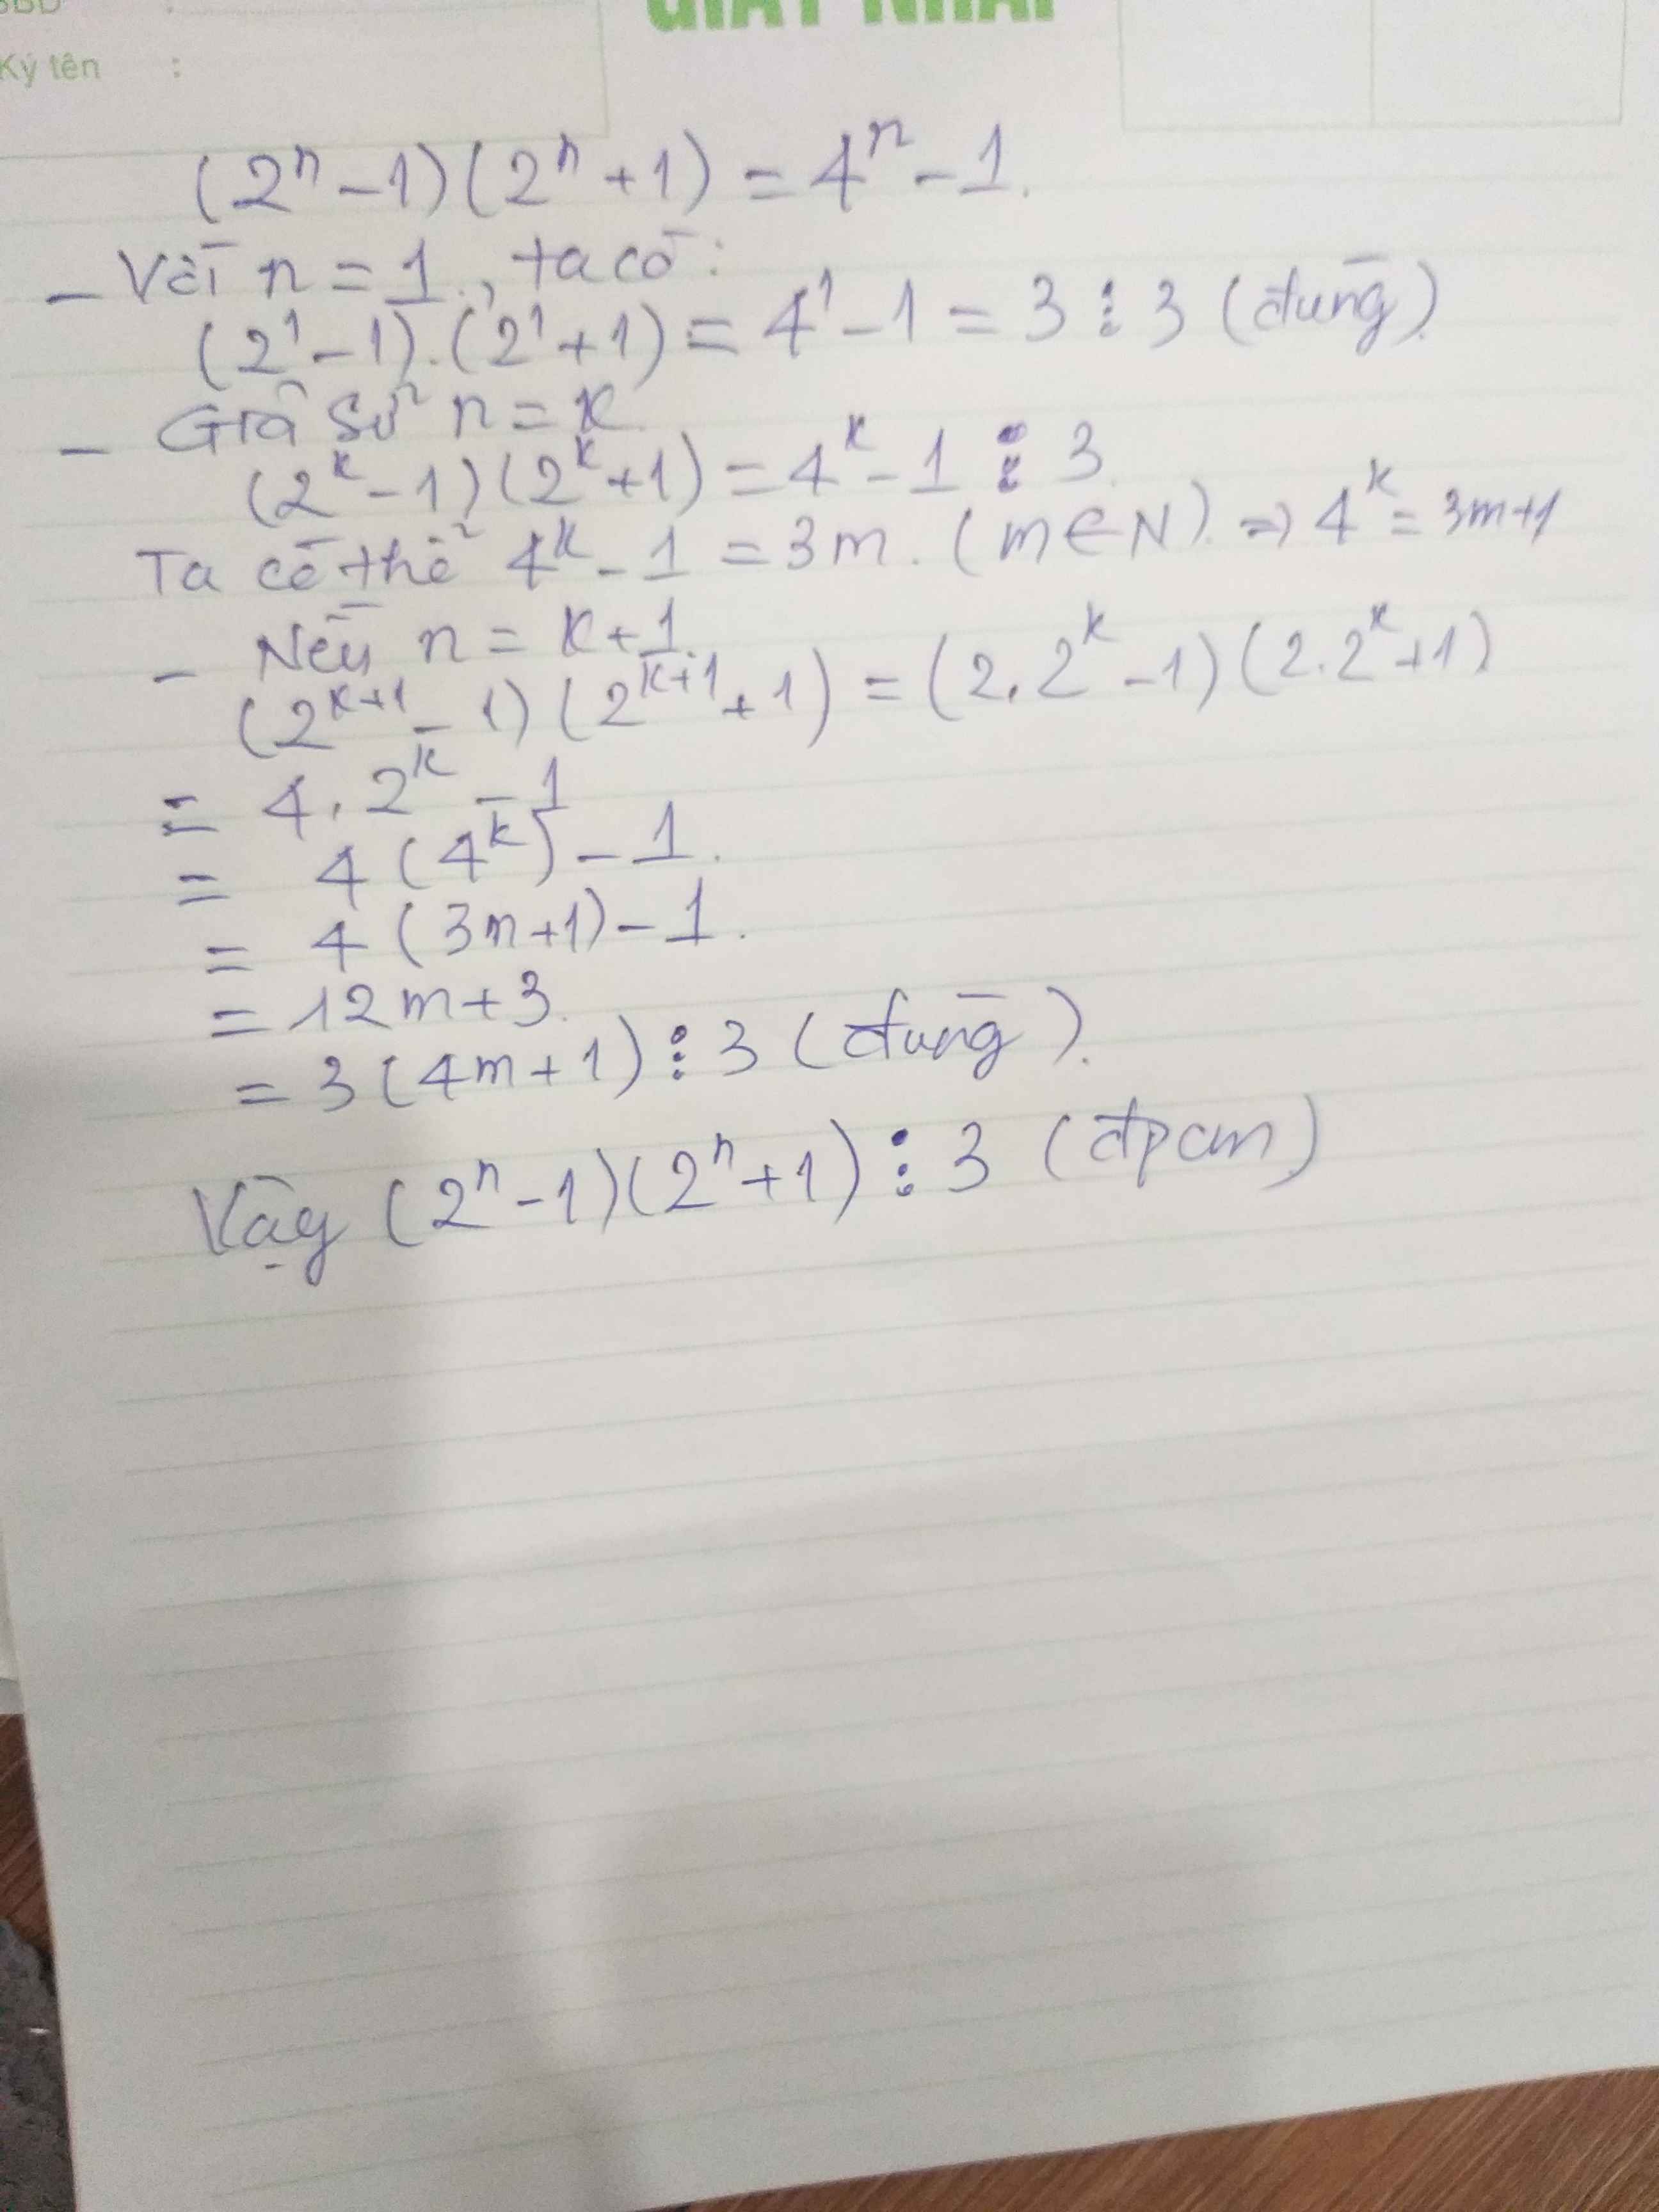 SBD :
GIẤY NHÁP
Ký tên :
(2ⁿ - 1)(2ⁿ + 1) = 4ⁿ - 1.
- Với n = 1, ta có:
(2¹ - 1).(2¹ + 1) = 4¹ - 1 = 3 ⋮ 3 (đúng).
- Giả sử n = k.
(2ᵏ - 1)(2ᵏ + 1) = 4ᵏ - 1 ⋮ 3.
Ta có thể 4ᵏ - 1 = 3m. (m ∈ N). ⇒ 4ᵏ = 3m+1
- Nếu n = k+1.
(2ᵏ⁺¹ - 1)(2ᵏ⁺¹ + 1) = (2.2ᵏ - 1)(2.2ᵏ + 1)
= 4.2ᵏ - 1
= 4(4ᵏ) - 1.
= 4(3m+1) - 1.
= 12m + 3.
= 3(4m + 1) ⋮ 3 (đúng).
Vậy (2ⁿ - 1)(2ⁿ + 1) ⋮ 3 (đpcm)